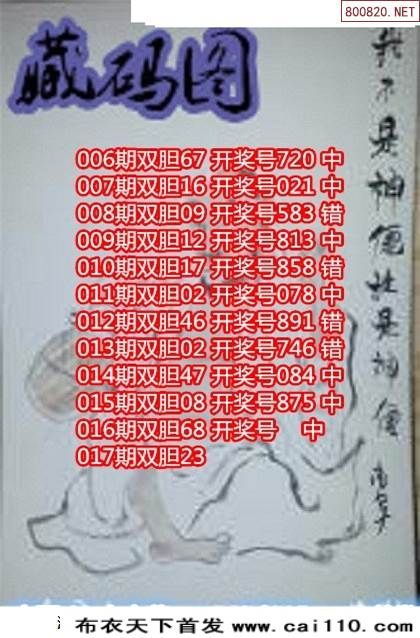 800820.NET
藏码图
006期双胆67 开奖号720 中
007期双胆16 开奖号021 中
008期双胆09 开奖号583 错
009期双胆12 开奖号813 中
010期双胆17 开奖号858 错
011期双胆02 开奖号078 中
012期双胆46 开奖号891 错
013期双胆02 开奖号746 错
014期双胆47 开奖号084 中
015期双胆08 开奖号875 中
016期双胆68 开奖号 中
017期双胆23
我不是神但也是神
布衣天下首发 www.cai110.com